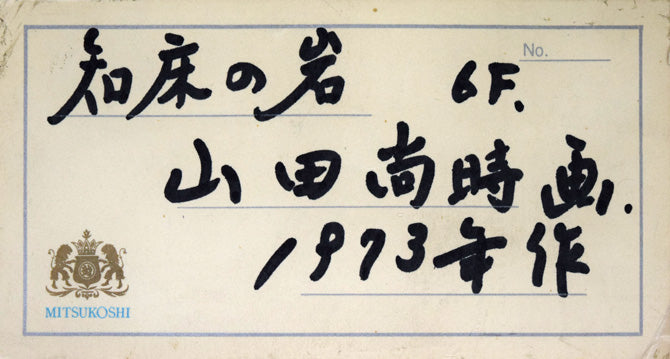 No.
知床の岩 6F.
山田尚時画.
1973年作
MITSUKOSHI